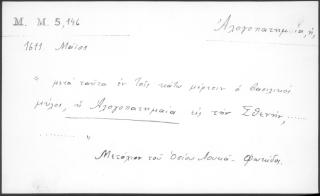 M. M. 5,146
Ἀλογοπατημαία, ἡ,
1611 Μάϊος
" μετὰ ταῦτα ἐν τοῖς κάτω μέρεσιν ὁ βασιλικὸς
μύλος, ἡ Ἀλογοπατημαία εἰς τὴν Σθενήν, ......
......... "
Μετόχιον τοῦ Ὁσίου Λουκᾶ - Φωκίδος.